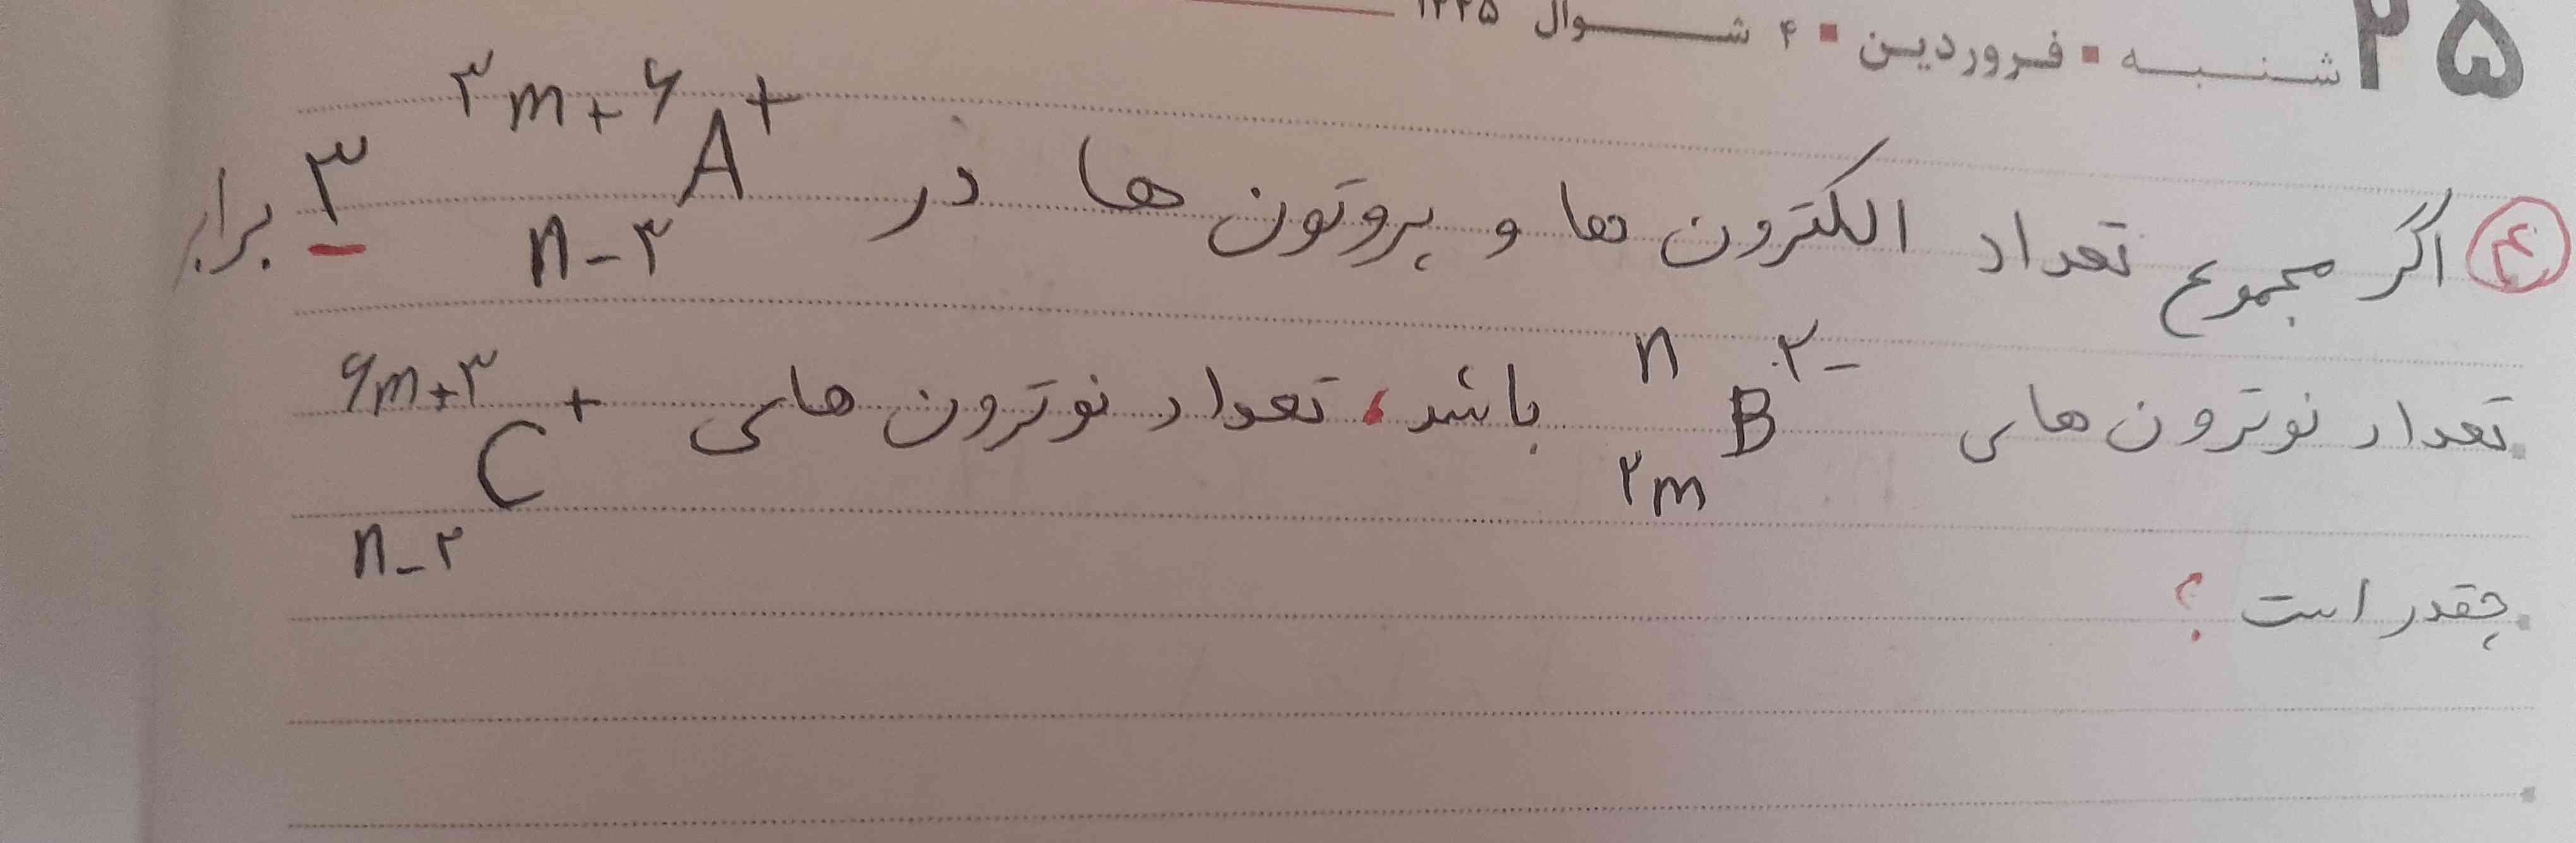 ۲۵ شنبه ▪ فروردین ▪ ۴ شوال ۱۴۴۵
۴ اگر مجموع تعداد الکترون ها و پروتون ها در ³m+۶ A+ n-۳ ۳ برابر
تعداد نوترون های n B ۲- ۲m باشد، تعداد نوترون های ۶m+۳ C+ n-۲
چقدر است؟